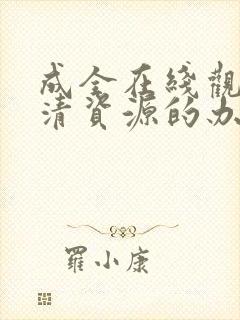 成全在綫觀
清資源的办
羅小康